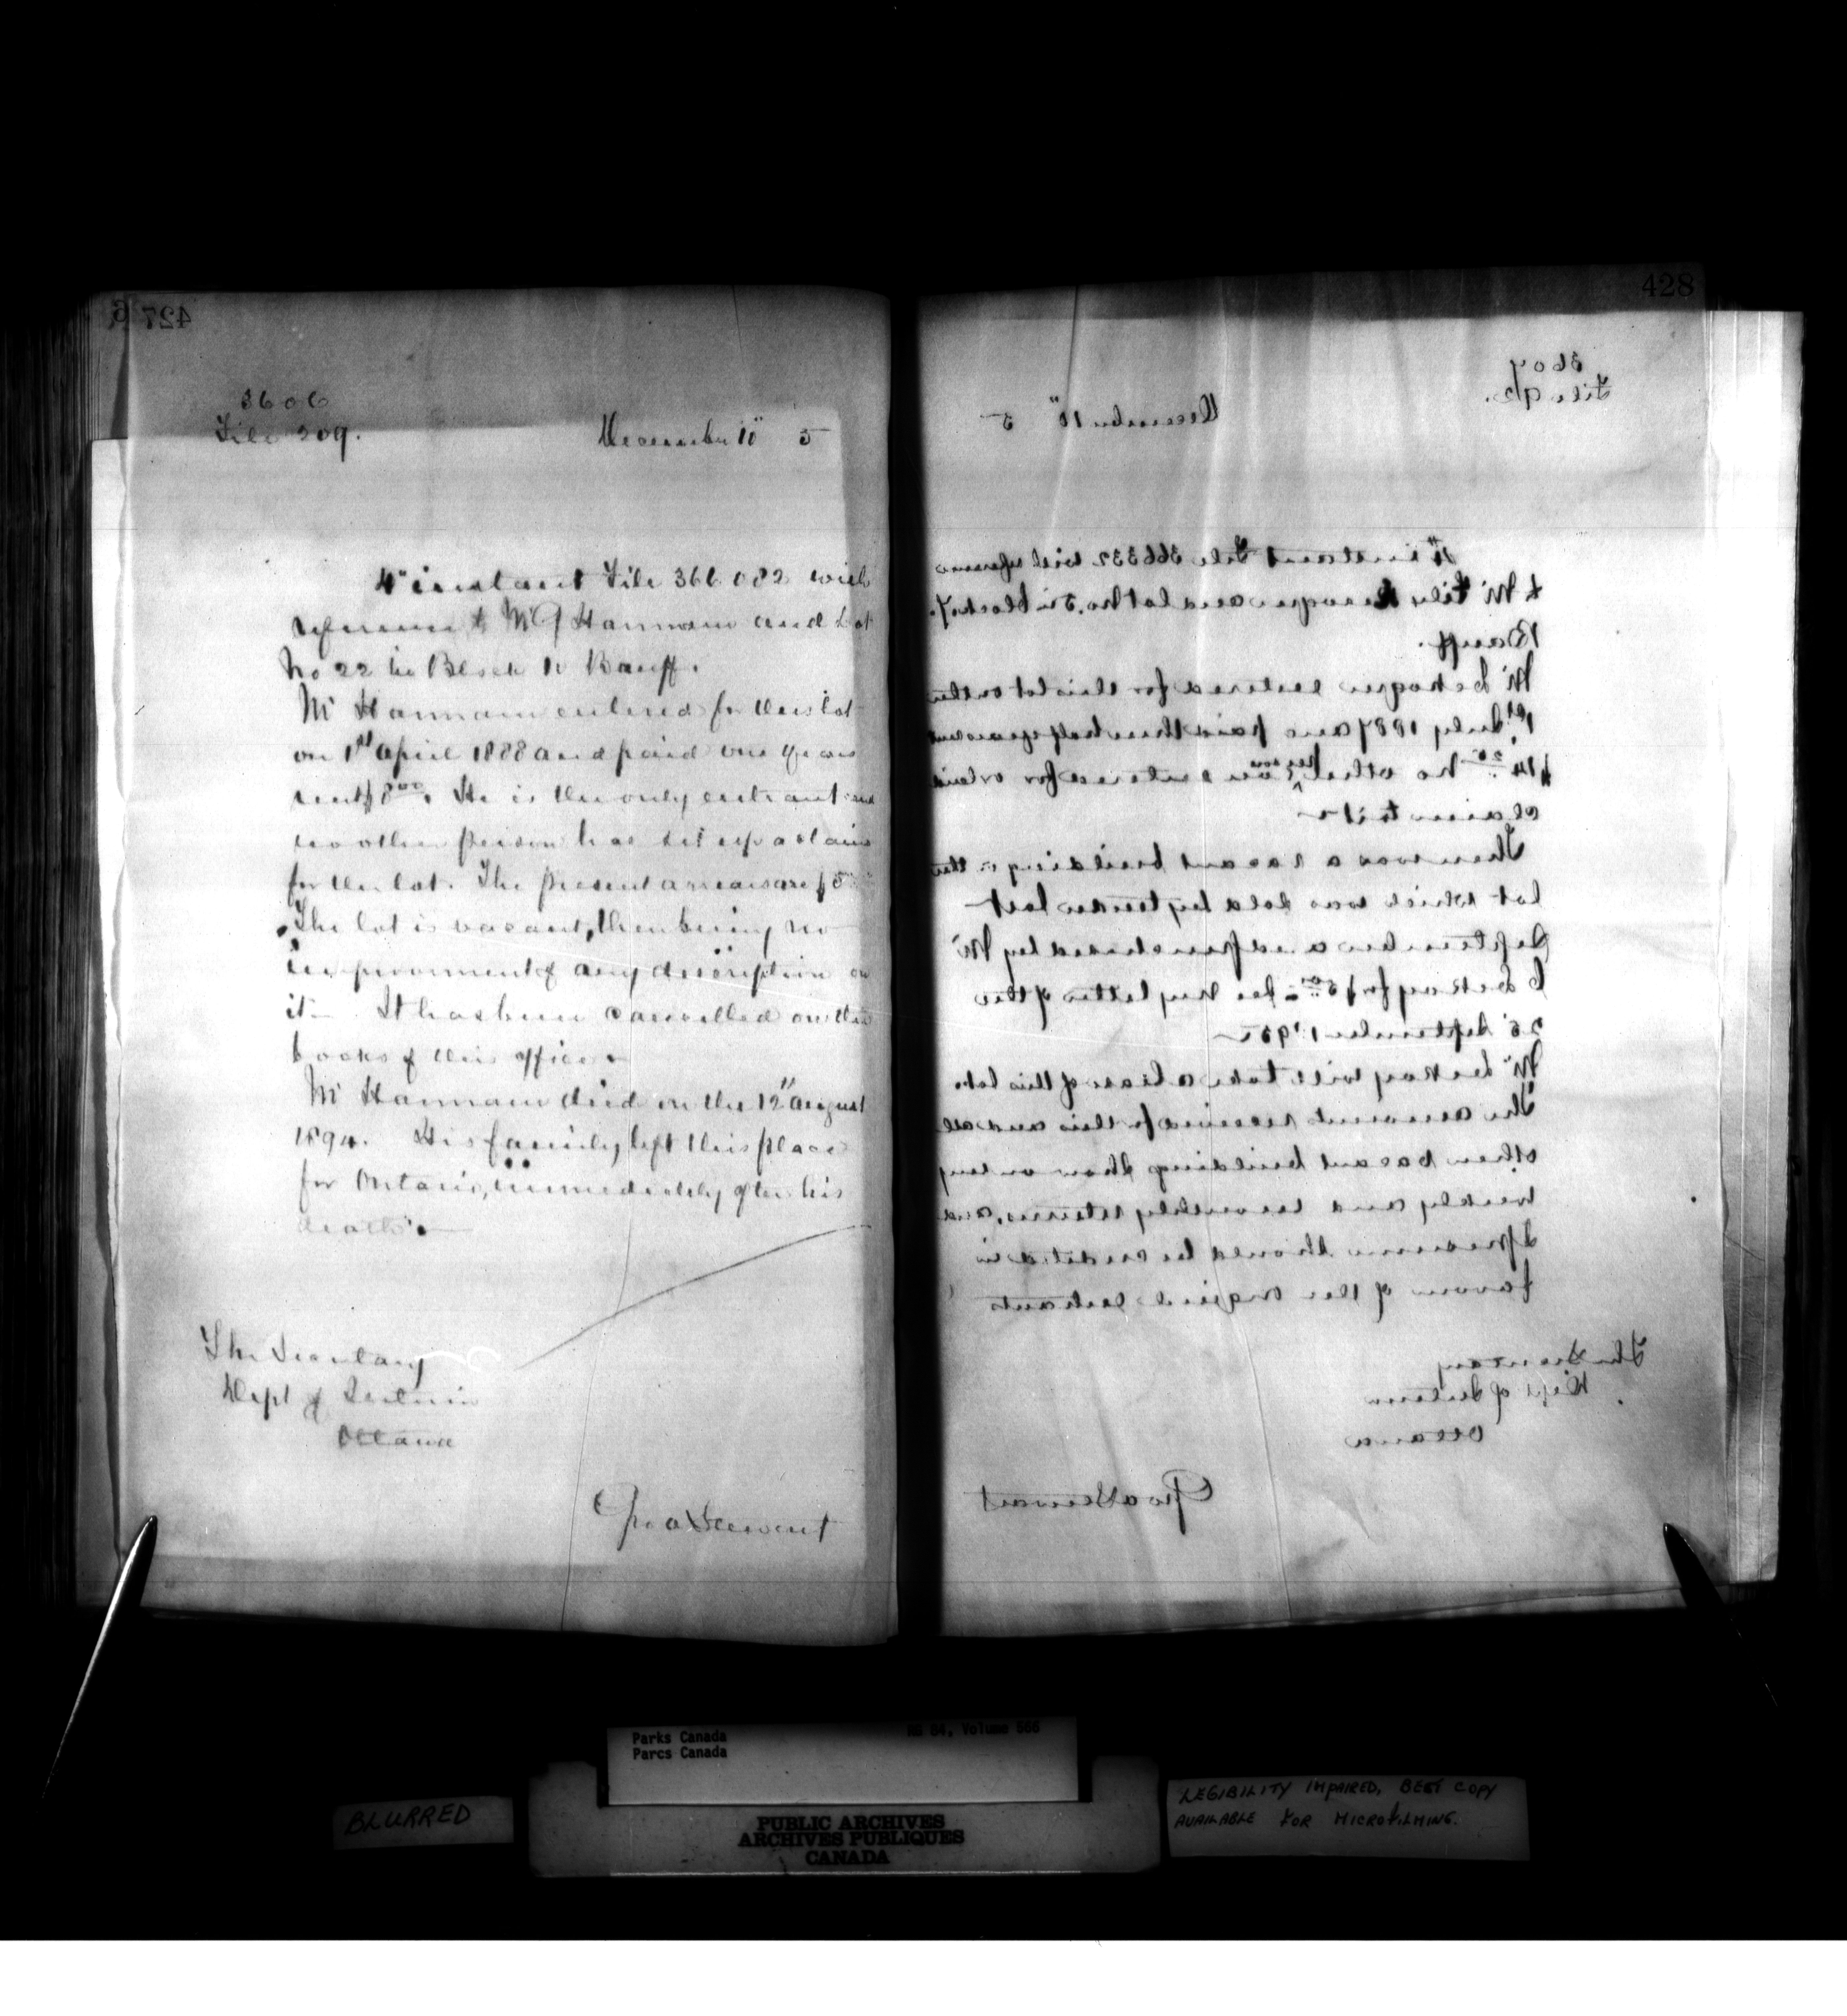 427
3606
File 209.
December 10" 5
4" instant File 366082 with
reference to Mr J Hannam and Lot
No 22 in Block 10 Banff.
Mr Hannam entered for this lot
on 1st April 1888 and paid one years
rent $8.00. He is the only entrant and
no other person has set up a claim
for the lot. The present arrears are $5
The lot is vacant, there being no
improvement of any description on
it. It has been cancelled on the
books of this office.
Mr Hannam died on the 12" August
1894. His family left this place
for Ontario, immediately after his
death.
The Secretary
Dept of Interior
Ottawa
Geo A Stewart
428
3607
File
December 10" 5
4" instant File 366332 with reference
to Mr and lot No. 5 in block 7.
Banff.
Mr entered for this lot on the
1st July 1887 and paid three half years rent
$14. No other person entered for or laid
claim to it
There was a vacant building on the
lot which was sold by tender last
September and purchased by Mr
for $5.00 - See my letter of the
25 September
Mr will take a lease of this lot.
The amount received for this and all
other vacant building show on my
weekly and monthly returns, and
I presume should be credited in
favour of the original entrants
The Secretary
Dept of Interior
Ottawa
Geo A Stewart
Parks Canada
Parcs Canada
RG 84, Volume 566
BLURRED
PUBLIC ARCHIVES
ARCHIVES PUBLIQUES
CANADA
LEGIBILITY IMPAIRED, BEST COPY
AVAILABLE FOR MICROFILMING.